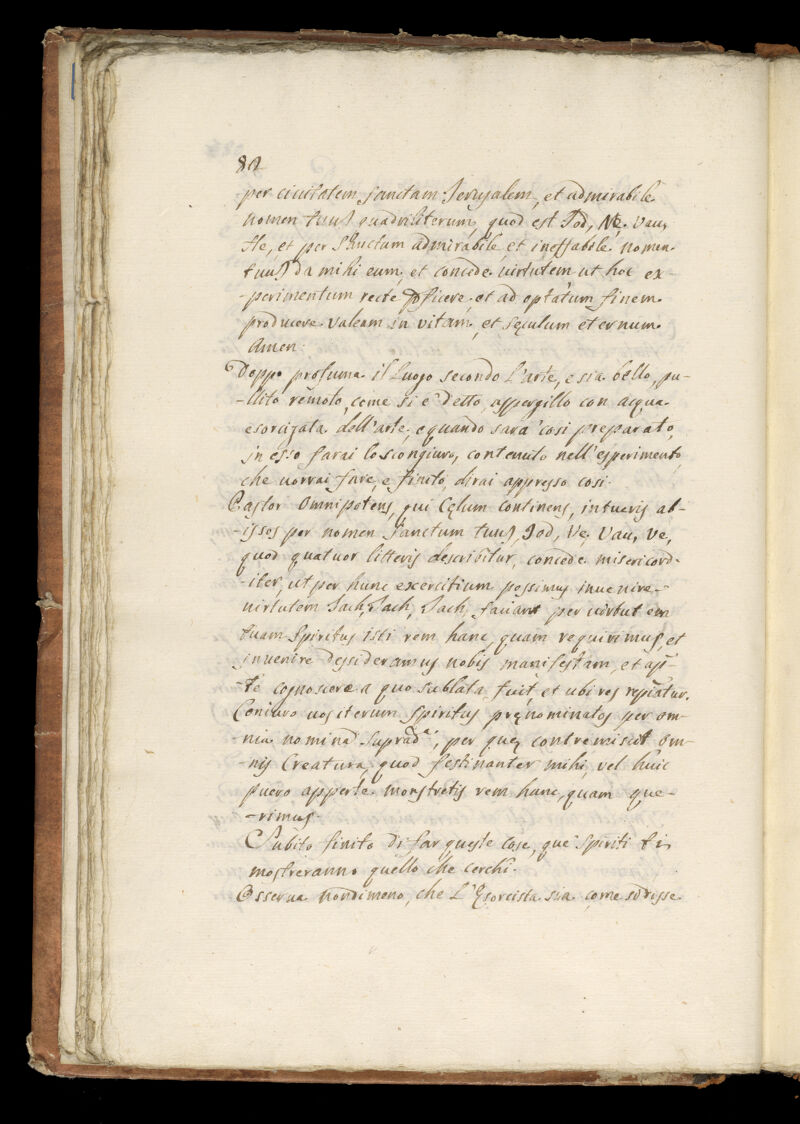 82
per ciuitatem sanctam Jerusalem, et admirabile
nomen tuu quadriliterum, quod est Jod, He. Vau,
He, et per Sanctum admirabile et ineffabile nomen
tuu da mihi eum, et concede uirtutem ut hoc ex-
-perimentum recte pficere et ad optatum finem
producere valeam in vitam, et seculum eternum
Amen.
Doppo profuma il luogo secondo l'arte, e sia bello, pu-
-lito remoto, come si è detto, aspergillo con acqua
esorcizata dell'arte, e quando sarà così preparato,
in esso farai lo scongiuro, contenuto nell'esperimento,
che uorrai fare, e finito, dirai appresso così.
Pastor Omnipotens, qui Celum continens, intueris ab-
-isses per nomen Sanctum tuu, Jod, Ve, Vau, Ve,
quod quatuor litteris describitur, concede misericord-
-iter, ut per hunc exercitium possimus inuenire
uirtutem Jach, Jach, Jach, faciant per uirtutem
tuam Spiritus isti rem hanc, quam requirimus, et
inuenire dessideramus nobis manifestam, et
-te cognoscere a quo sublata fuit, et ubi res
Coniuro uos iterum Spiritus prenominatos per om-
-nia nomina supradª, per que contremiscit om-
-nis Creatura, quod festinanter mihi, vel huic
puero apperte monstretis rem hanc, quam que-
-rimus.
Subito finito di far queste cose, que' Spiriti ti
mostreranno quello che cerchi.
Osserua nondimeno, che l'Esorcista sia come si disse